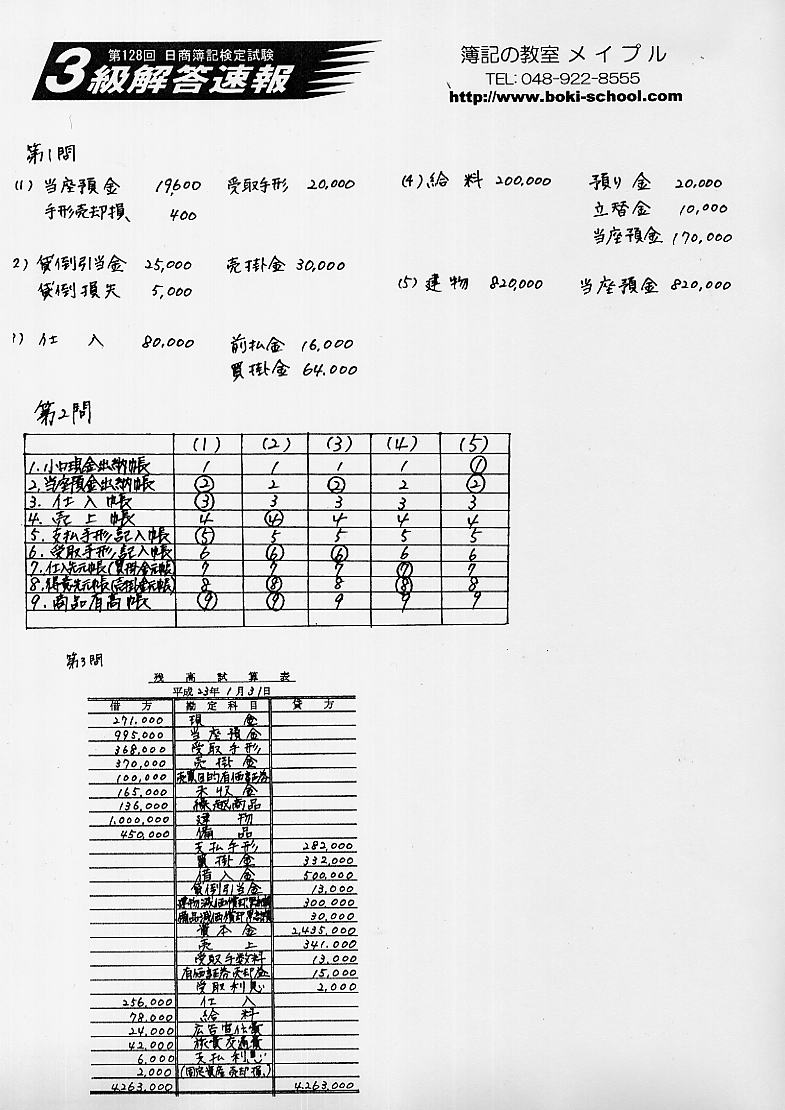 第128回 日商簿記検定試験
3級解答速報
簿記の教室 メイプル
TEL: 048-922-8555
http://www.boki-school.com
第1問
(1) 当座預金 19,600 受取手形 20,000
手形売却損 400
2) 貸倒引当金 25,000 売掛金 30,000
貸倒損失 5,000
) 仕入 80,000 前払金 16,000
買掛金 64,000
(4) 給料 200,000 預り金 20,000
立替金 10,000
当座預金 170,000
(5) 建物 820,000 当座預金 820,000
第2問
(1) (2) (3) (4) (5)
1. 小口現金出納帳 1 1 1 1 ①
2. 当座預金出納帳 ② 2 ② 2 ②
3. 仕入帳 ③ 3 3 3 3
4. 売上帳 4 ④ 4 4 4
5. 支払手形記入帳 ⑤ 5 5 5 5
6. 受取手形記入帳 6 ⑥ ⑥ 6 6
7. 仕入先元帳(買掛金元帳) 7 7 7 ⑦ 7
8. 得意先元帳(売掛金元帳) 8 ⑧ 8 ⑧ 8
9. 商品有高帳 ⑨ ⑨ 9 9 9
第3問
残高試算表
平成23年1月31日
借方 勘定科目 貸方
271,000 現金
995,000 当座預金
368,000 受取手形
370,000 売掛金
100,000 売買目的有価証券
165,000 未収金
136,000 繰越商品
1,000,000 建物
450,000 備品
支払手形 282,000
買掛金 332,000
借入金 500,000
貸倒引当金 13,000
建物減価償却累計額 300,000
備品減価償却累計額 30,000
資本金 2,435,000
売上 341,000
受取手数料 13,000
有価証券売却益 15,000
受取利息 2,000
256,000 仕入
78,000 給料
24,000 広告宣伝費
42,000 旅費交通費
6,000 支払利息
2,000 (固定資産売却損)
4,263,000 4,263,000